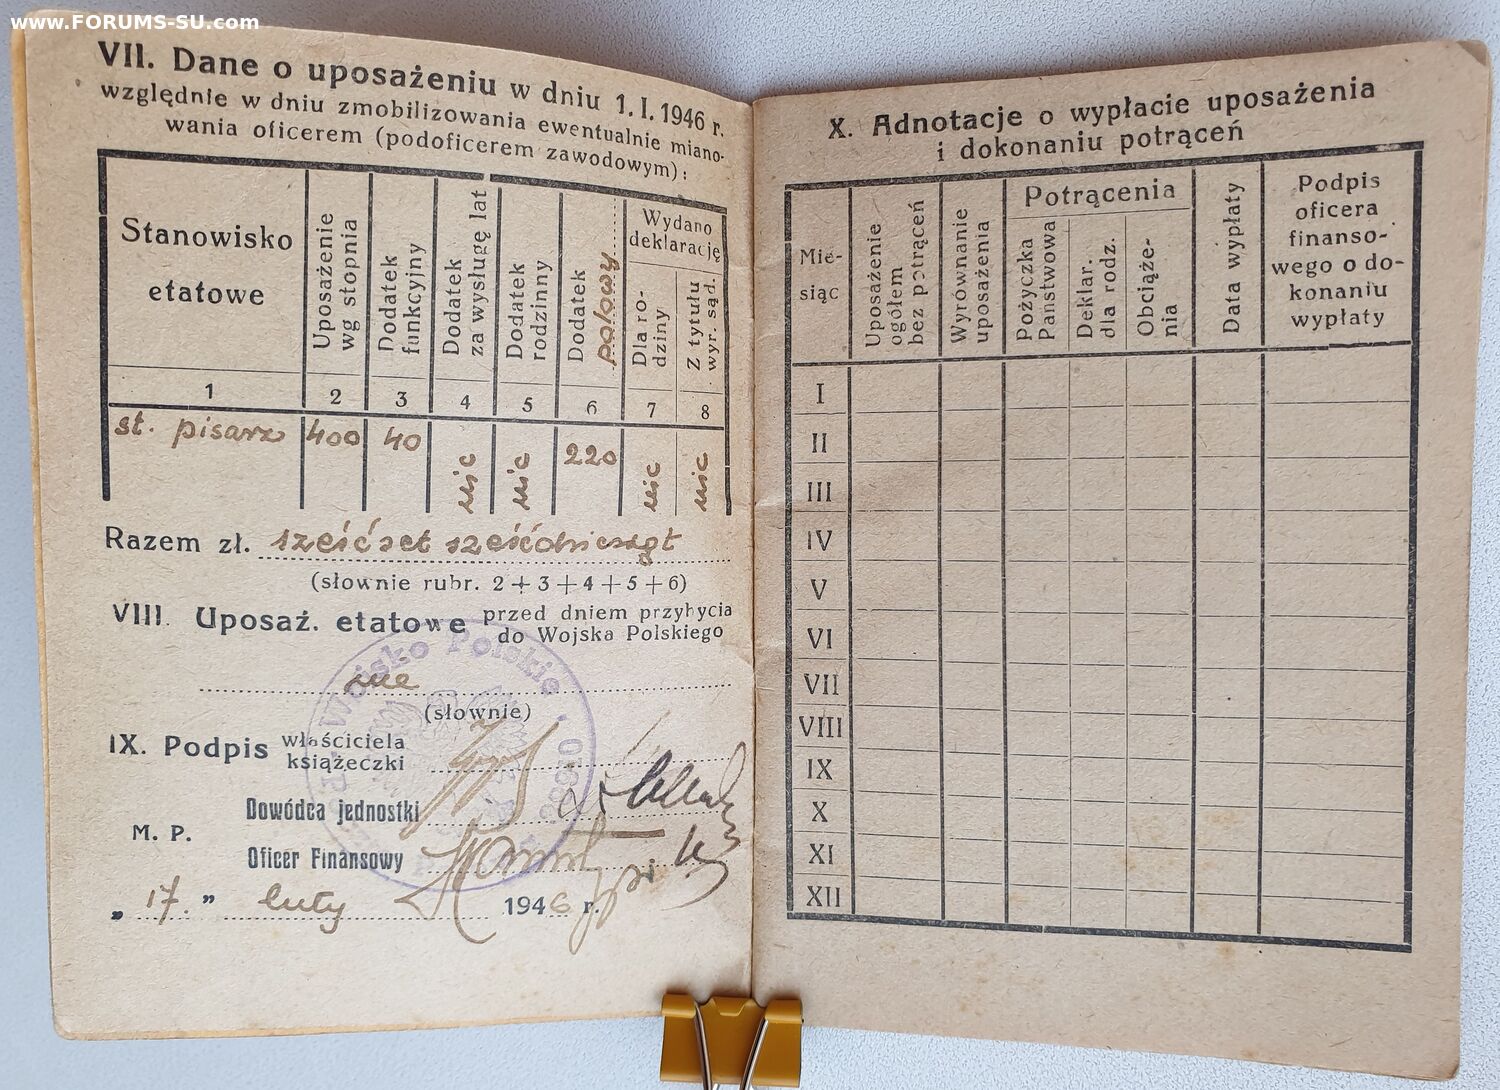 www.FORUMS-SU.com
VII. Dane o uposażeniu w dniu 1. I. 1946 r.
względnie w dniu zmobilizowania ewentualnie miano-
wania oficerem (podoficerem zawodowym):
Stanowisko
etatowe
Uposażenie
wg stopnia
Dodatek
funkcyjny
Dodatek
za wysługę lat
Dodatek
rodzinny
Dodatek
polowy
Wydano
deklarację
Dla ro-
dziny
Z tytułu
wyr. sąd.
1 2 3 4 5 6 7 8
st. pisarz 400 40 nic nic 220 nic nic
Razem zł. sześćset sześćdziesiąt
(słownie rubr. 2+3+4+5+6)
VIII. Uposaż. etatowe przed dniem przybycia
do Wojska Polskiego
(słownie)
Wojsko Polskie
IX. Podpis właściciela
książeczki
Dowódca jednostki
M. P.
Oficer Finansowy
„ 17. ” luty 1946 r.
X. Adnotacje o wypłacie uposażenia
i dokonaniu potrąceń
Mie-
siąc
Uposażenie
ogółem
bez potrąceń
Wyrównanie
uposażenia
Potrącenia
Pożyczka
Państwowa
Deklar.
dla rodz.
Obciąże-
nia
Data wypłaty
Podpis
oficera
finanso-
wego o do-
konaniu
wypłaty
I
II
III
IV
V
VI
VII
VIII
IX
X
XI
XII